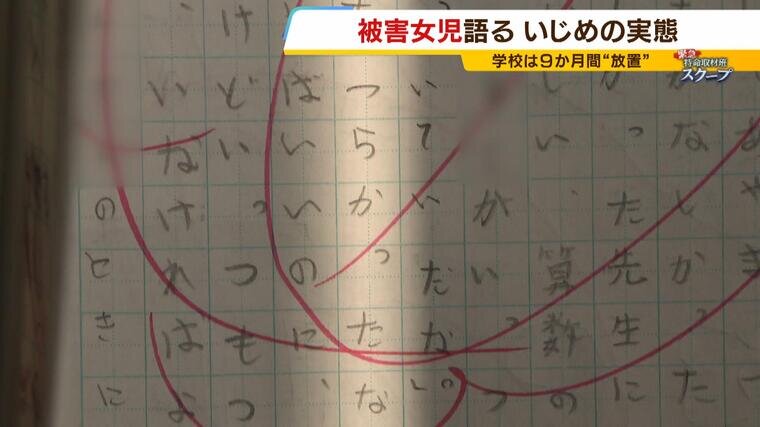 被害女児語る いじめの実態
学校は9か月間“放置”
緊急
特命取材班
スクープ
あやき
なしかった
った先生に
い、算数の
がいっつ
いていだがい。
つらかった、な
ばいいのに、
けどいっつもつ
いなければよ
のときに